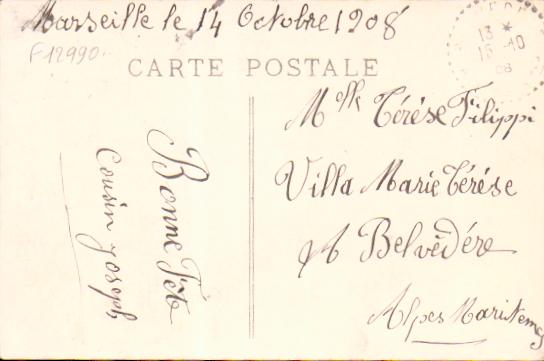 Marseille le 14 Octobre 1908
F12990.
CARTE POSTALE
Bonne Fêt
Cousin Joseph
Melle Térése Filippi
Villa Marie Térése
A Belvédére
Alpes Maritemes
13 *
15-10
08